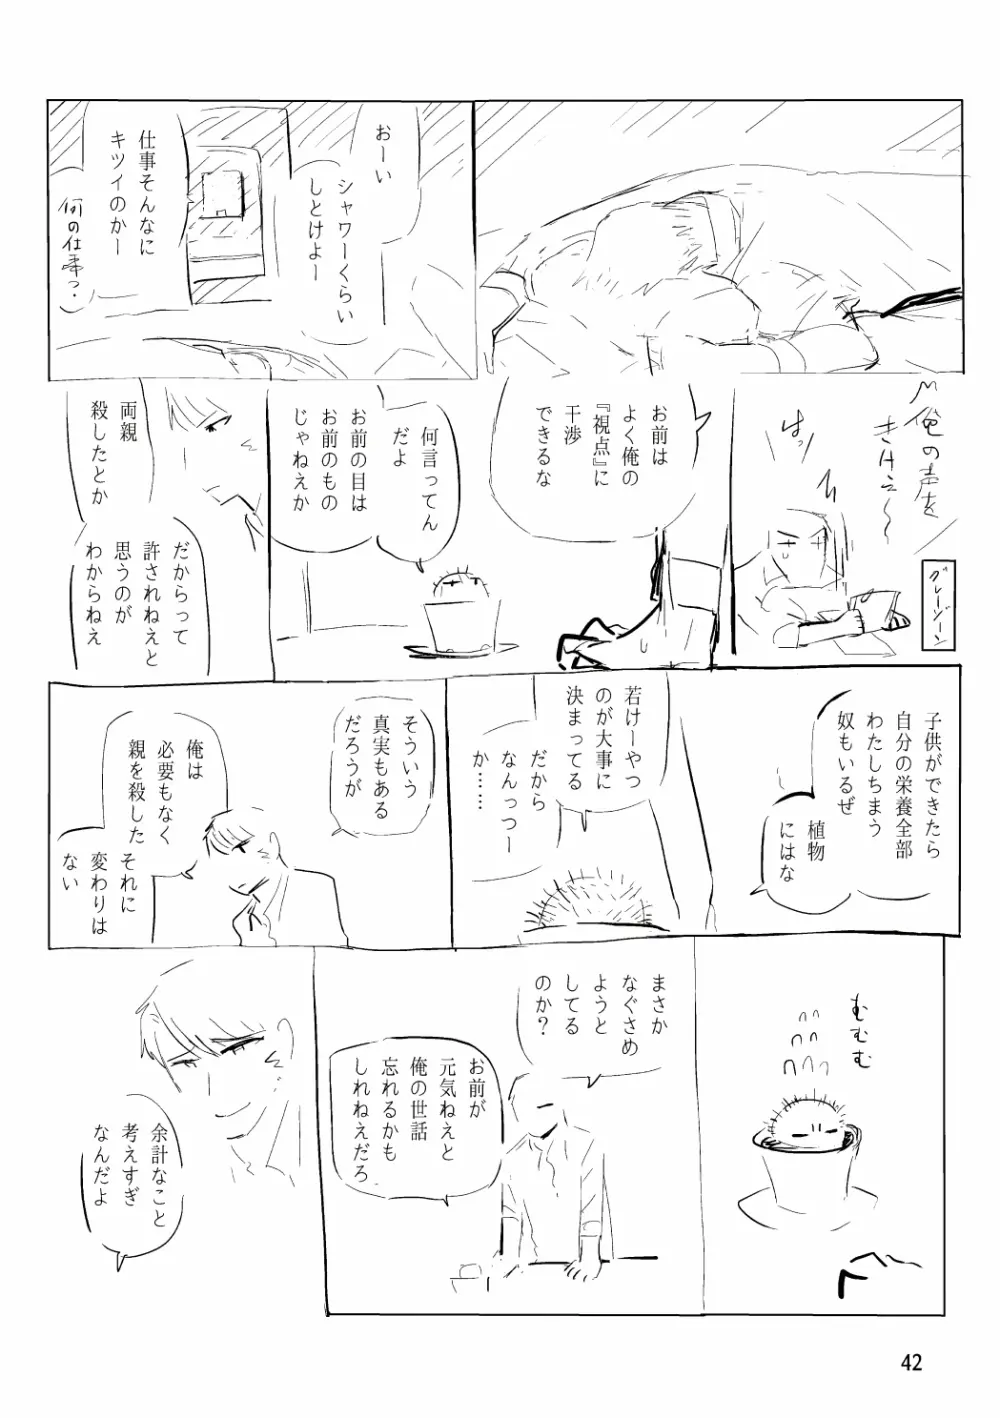 おーい
シャワーくらい
しとけよー
仕事そんなに
キツイのかー
(何の仕事っ・)
俺の声を
きけえ〜
はっ
グレージーン
お前は
よく俺の
『視点』に
干渉
できるな
何言ってん
だよ
お前の目は
お前のもの
じゃねえか
両親
殺したとか
だからって
許されねえと
思うのが
わからねえ
子供ができたら
自分の栄養全部
わたしちまう
奴もいるぜ
植物
にはな
若けーやつ
のが大事に
決まってる
だから
なんっつー
か……
そういう
真実もある
だろうが
俺は
必要もなく
親を殺した
それに
変わりは
ない
むむむ
まさか
なぐさめ
ようと
してる
のか?
お前が
元気ねえと
俺の世話
忘れるかも
しれねえだろ
余計なこと
考えすぎ
なんだよ
42